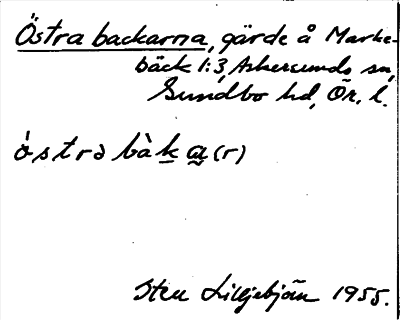 Östra backarna, gärde å Marke-
bäck 1:3, Askersunds sn,
Sundbo hd, Ör. l.
òstrə bàka(r)
Sten Lilljebjörn 1955.